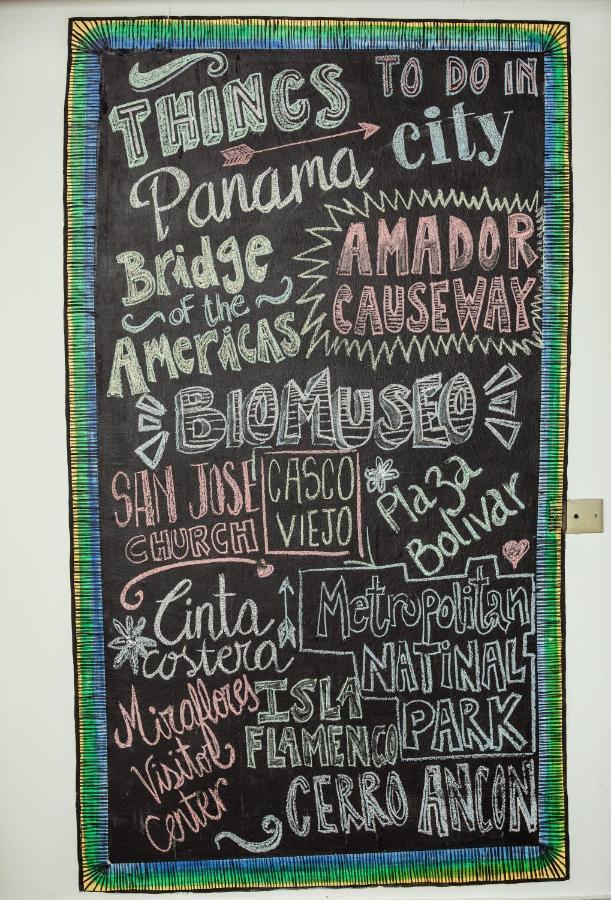 THINGS TO DO IN
Panama city
Bridge
of the
Americas
AMADOR
CAUSEWAY
BIOMUSEO
SAN JOSE
CHURCH
CASCO
VIEJO
Plaza
Bolivar
Cinta
costera
Metropolitan
NATINAL
PARK
Miraflores
Visitor
Center
ISLA
FLAMENCO
CERRO ANCON